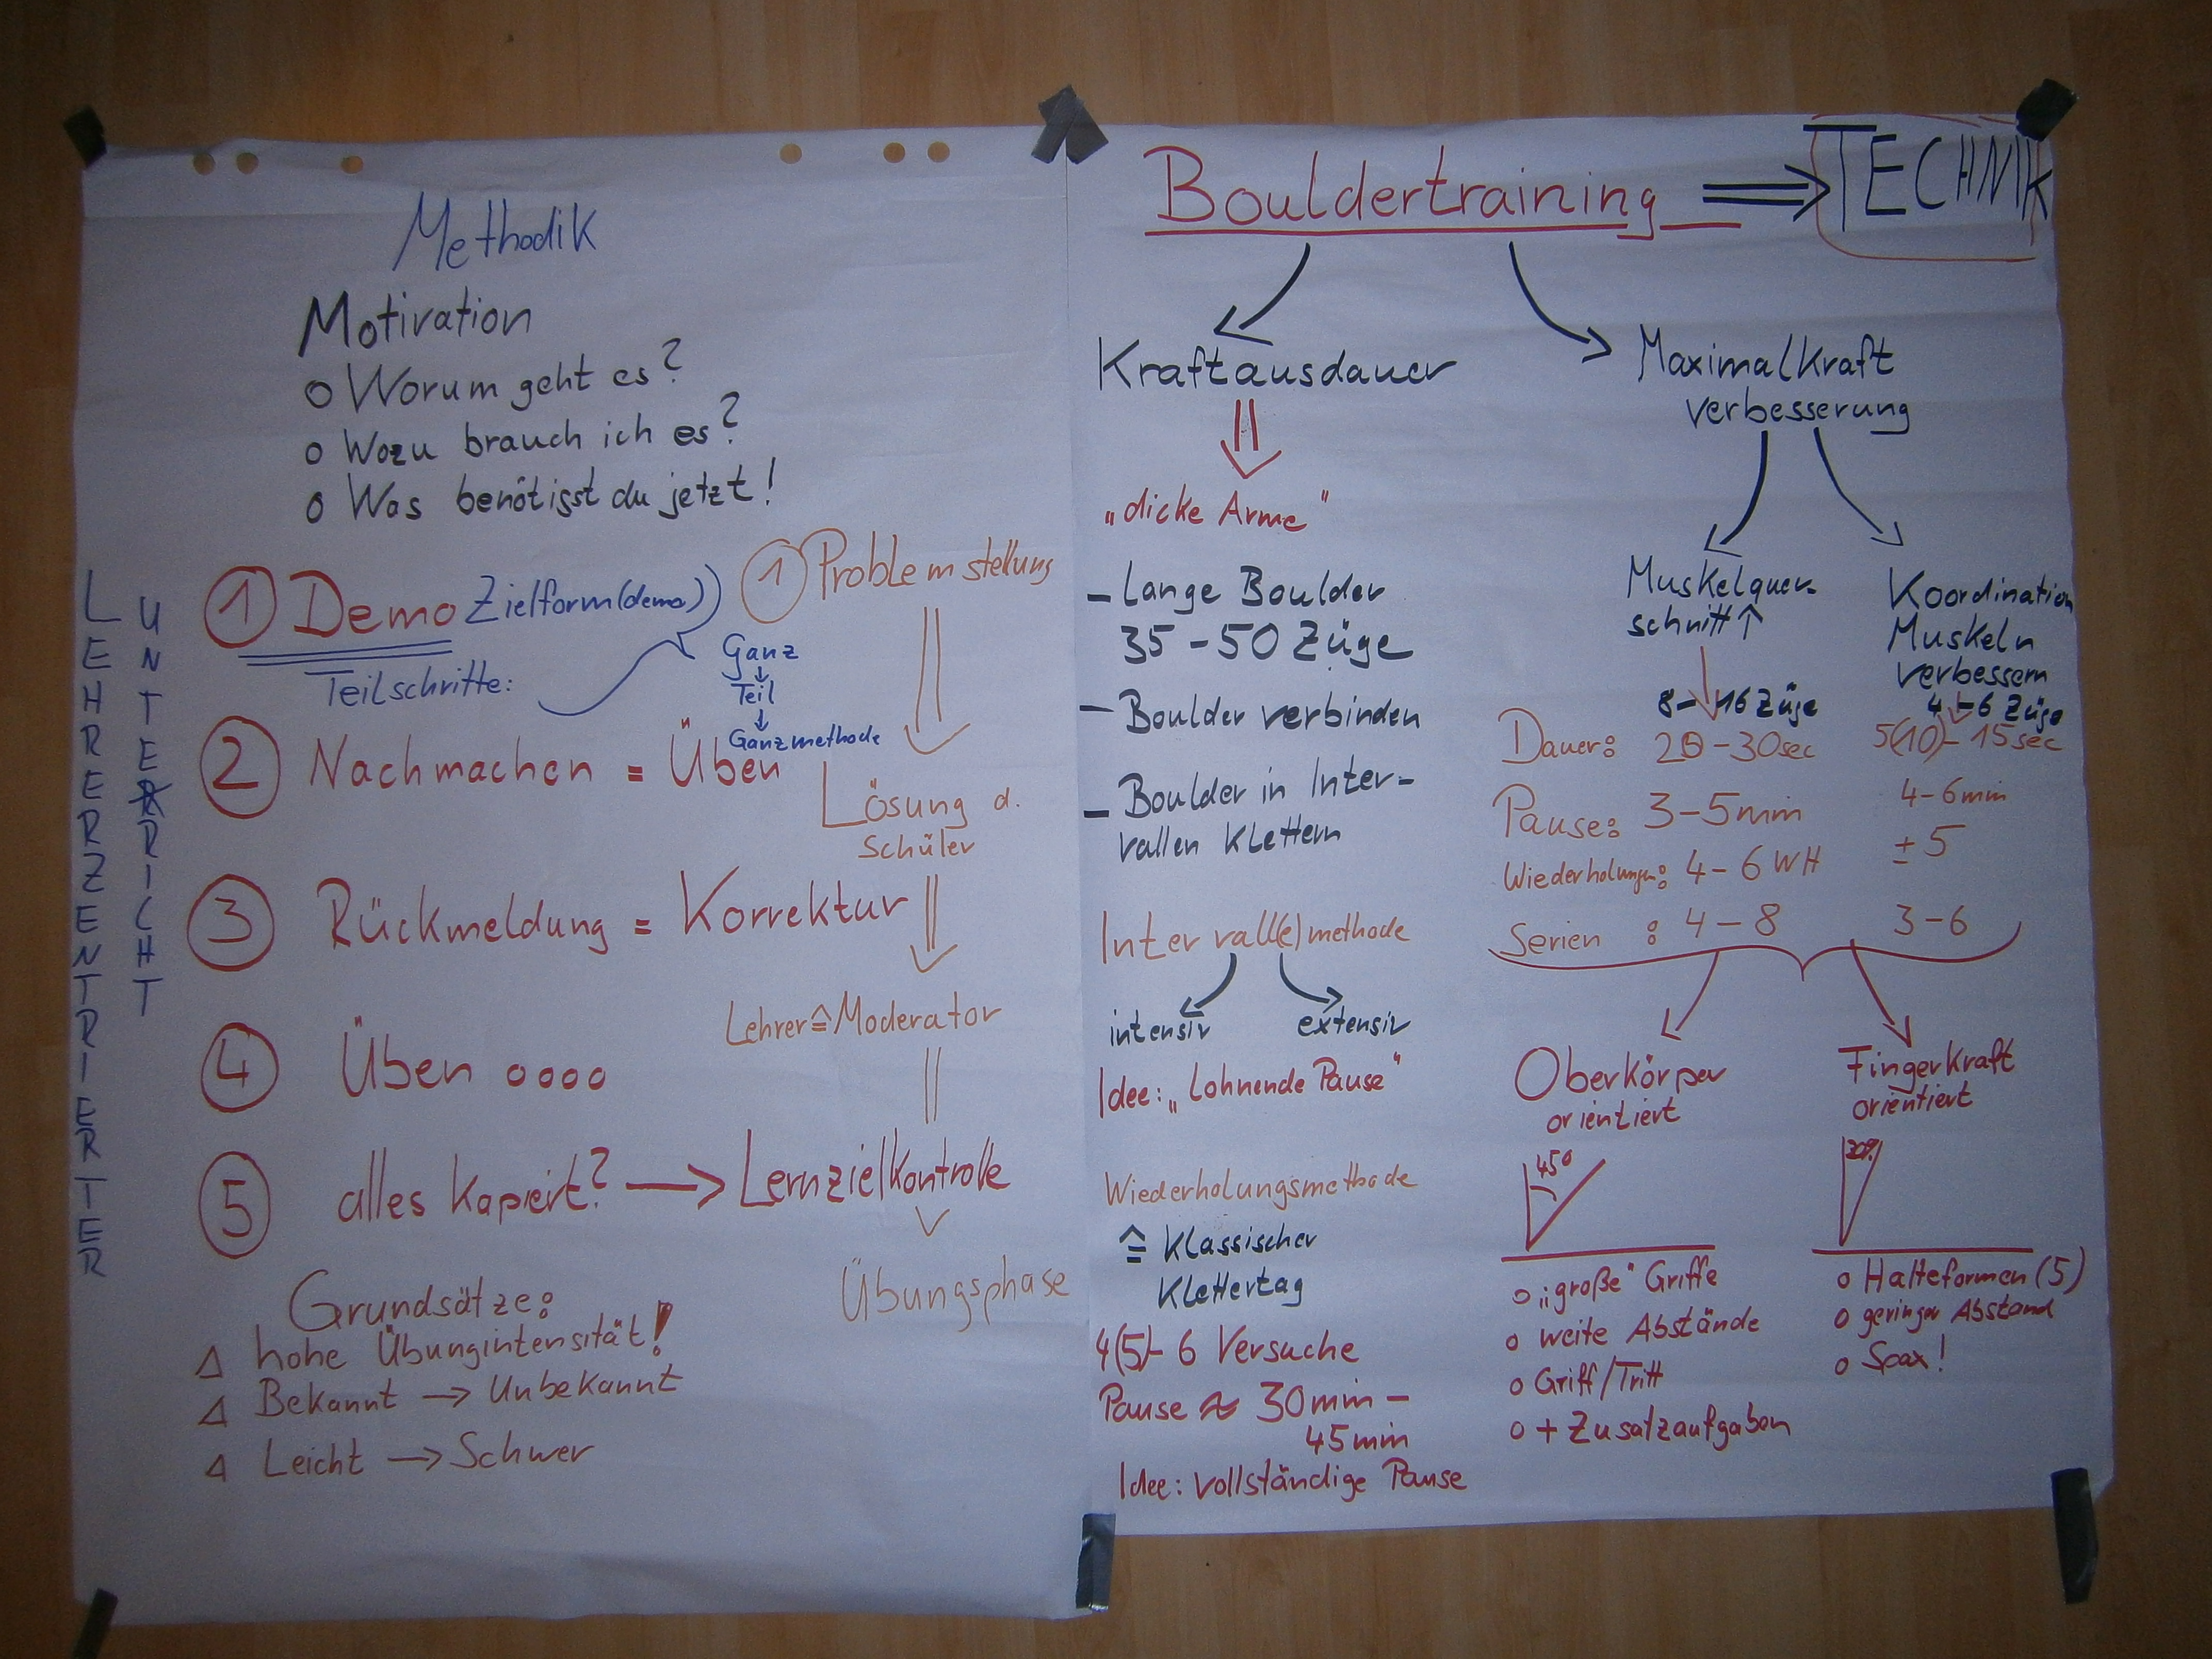 Methodik
Motivation
o Worum geht es?
o Wozu brauch ich es?
o Was benötigst du jetzt!
LEHRERZENTRIERTER
UNTERRICHT
1 Demo Zielform (demo)
Teilschritte:
Ganz
↓
Teil
↓
Ganzmethode
2 Nachmachen = Üben
3 Rückmeldung = Korrektur
4 Üben oooo
5 alles kapiert? → Lernzielkontrolle
1 Problemstellung
Lösung d.
Schüler
Lehrer ≙ Moderator
Übungsphase
Grundsätze:
Δ hohe Übungintensität!
Δ Bekannt → Unbekannt
Δ Leicht → Schwer
Bouldertraining ⇒ TECHNIK
Kraftausdauer
„dicke Arme"
- Lange Boulder
35 - 50 Züge
- Boulder verbinden
- Boulder in Inter-
vallen klettern
Intervall(e)methode
intensiv extensiv
Idee: „Lohnende Pause"
Wiederholungsmethode
≙ Klassischer
Klettertag
4(5)- 6 Versuche
Pause ≈ 30min -
45min
Idee: vollständige Pause
Maximalkraft
verbesserung
Muskelquer-
schnitt ↑
Koordination
Muskeln
verbessern
8 - 16 Züge 4 - 6 Züge
Dauer: 20 - 30sec 5(10)- 15sec
Pause: 3 - 5min 4-6min
Wiederholungen: 4 - 6 WH ± 5
Serien : 4 - 8 3 - 6
Oberkörper
orientiert
45°
o „große" Griffe
o weite Abstände
o Griff/Tritt
o + Zusatzaufgaben
Fingerkraft
orientiert
o Halteformen (5)
o geringer Abstand
o Spax!